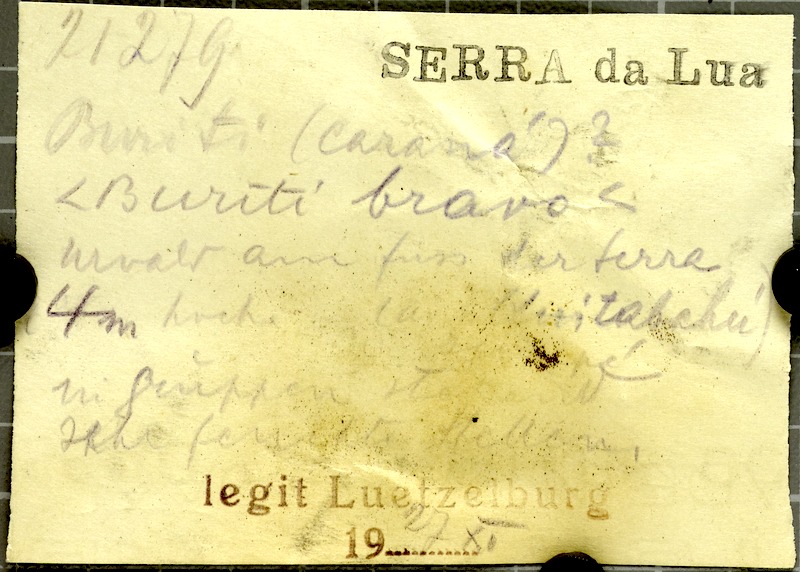 21279
SERRA da Lua
Buriti (caraná)?
<Buriti bravo<
Urwald am fuss der serra
4m hoch
in gruppen stehend
Sehr feuchte Stellen,
legit Luetzelburg
1927 XI